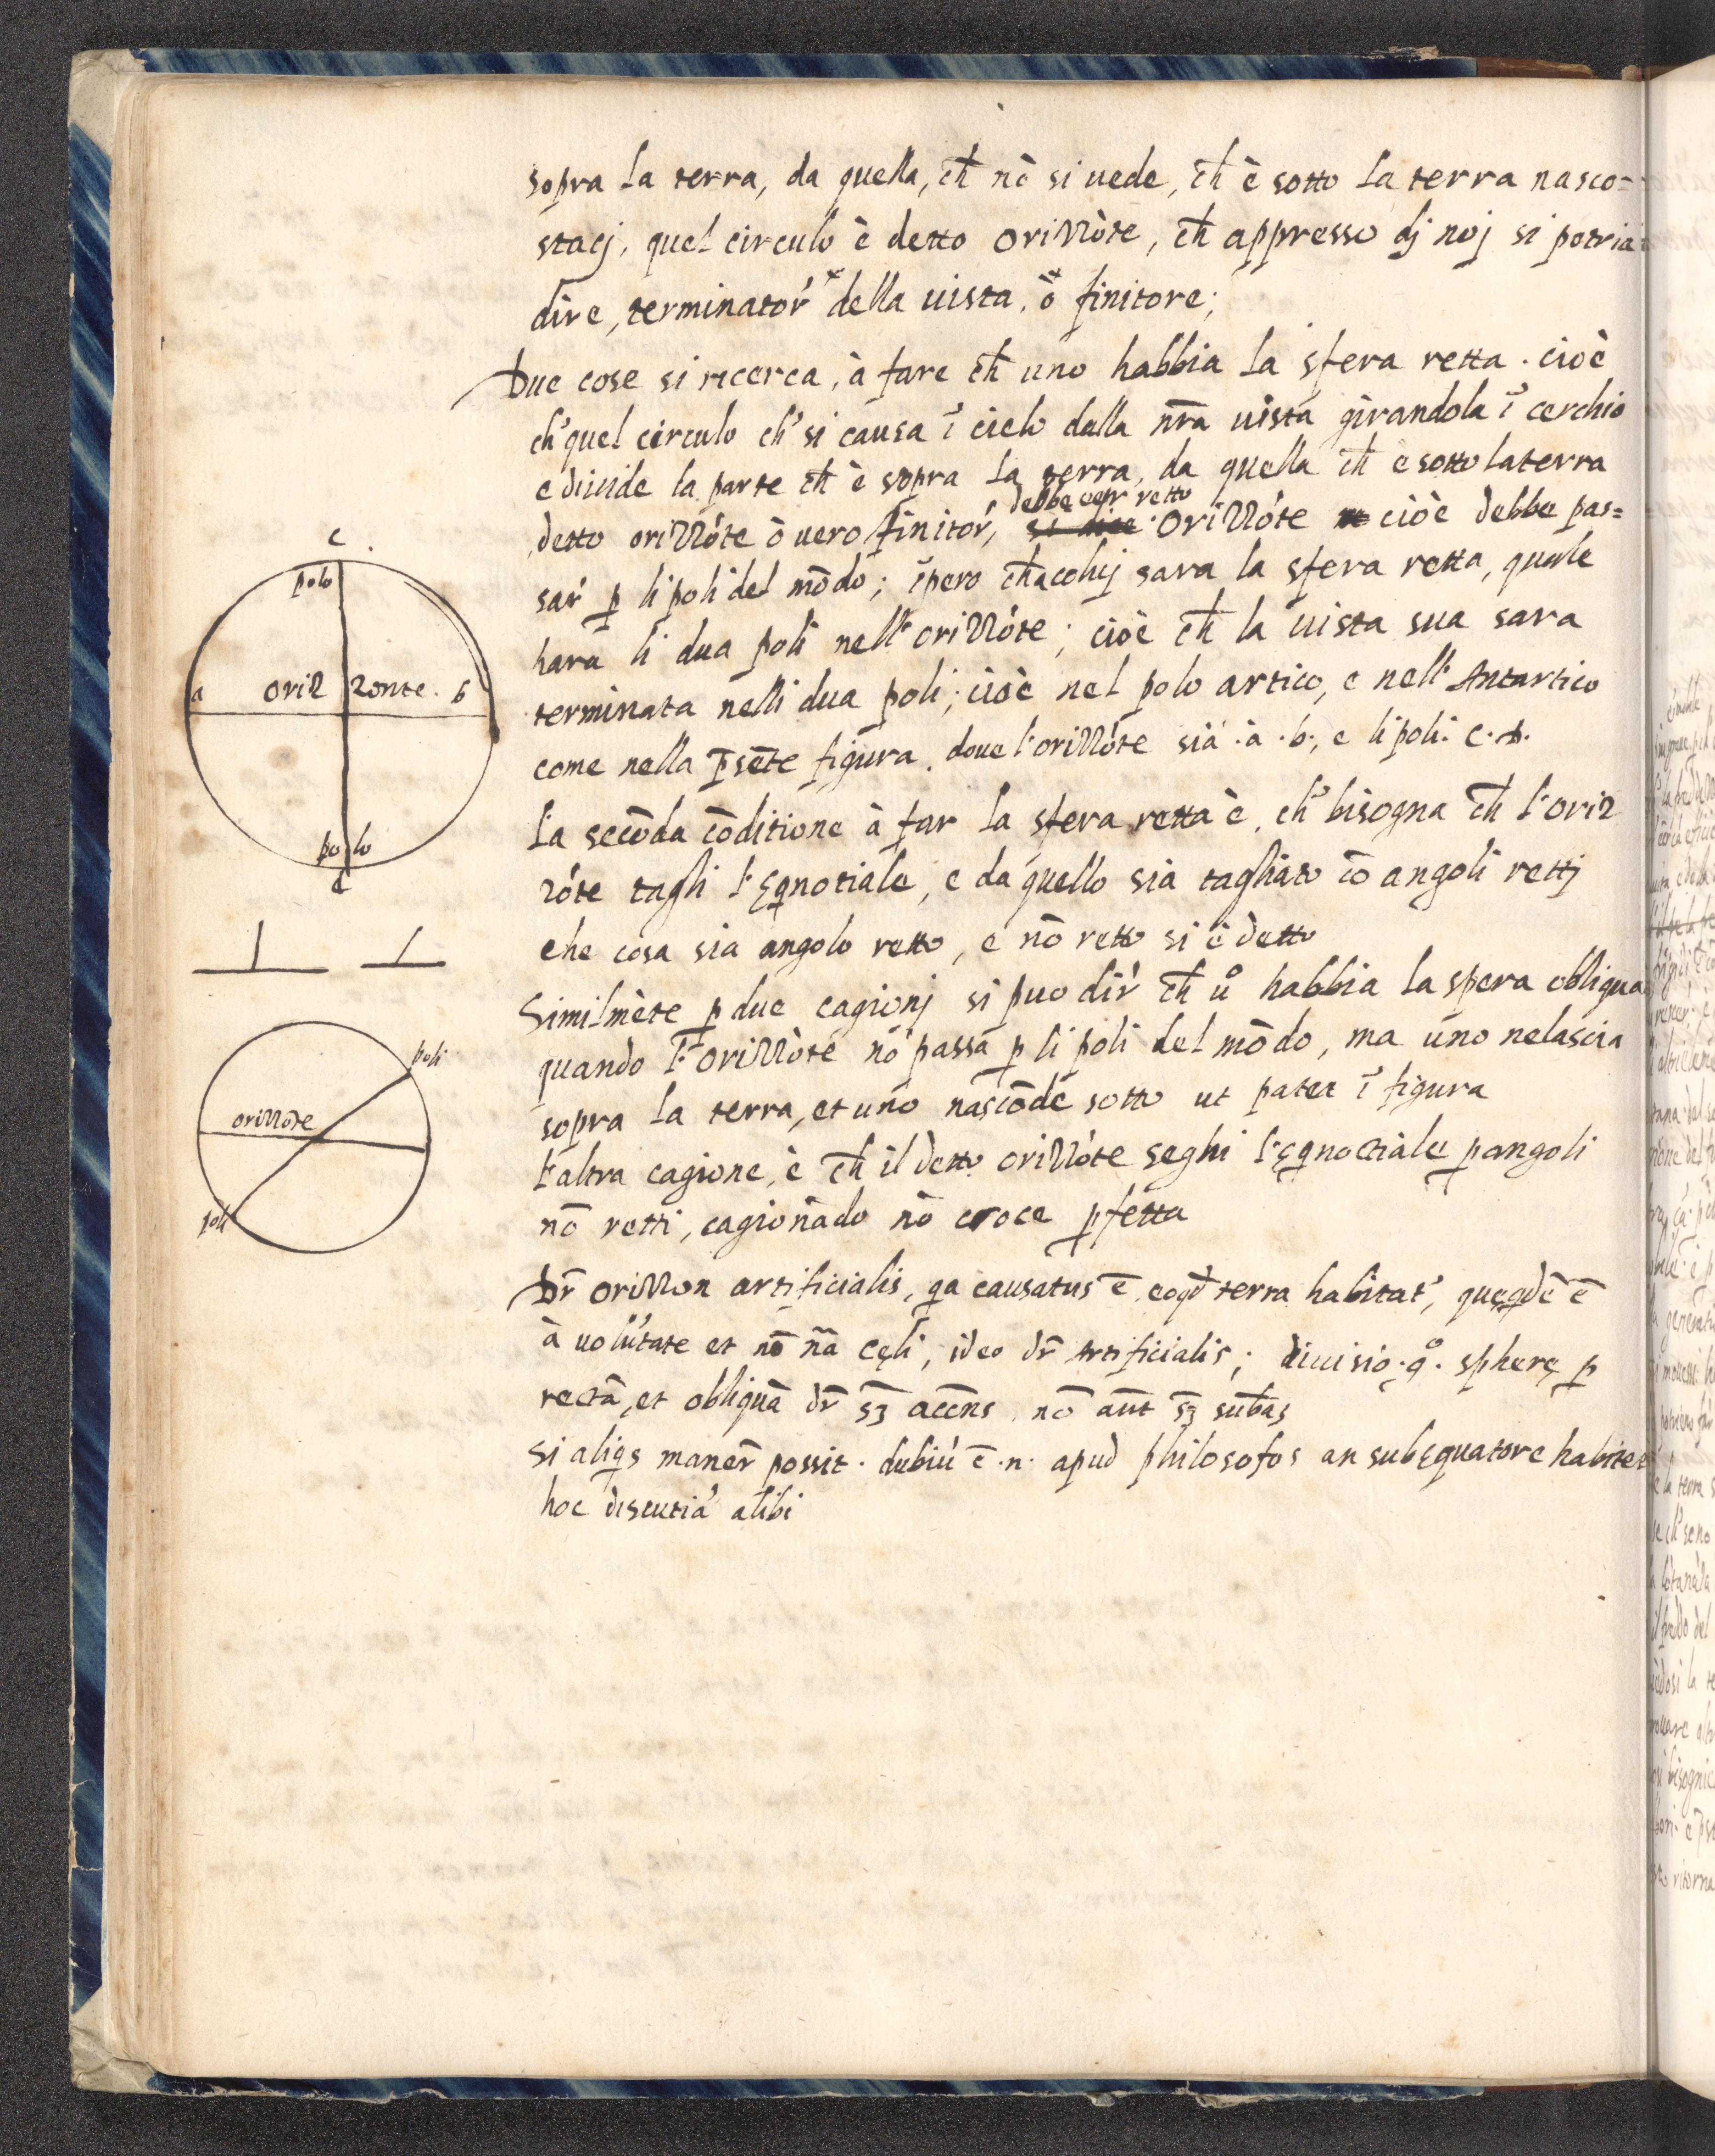 sopra la terra, da quella, ch̄ nō si uede, ch̄ è sotto la terra nasco=
stacj, quel circulo è detto orizzòte, ch̄ appresso dj noj si potria
dire, terminator' della uista, ō finitore;
Due cose si ricerca, à fare ch̄ uno habbia la sfera retta. cioè
ch' quel circulo ch' si causa ī cielo dalla nr̄a uista girandola ī cerchio
e diuide la parte ch̄ è sopra la terra, da quella ch̄ è sotto la terra
debbe eẜr retto
detto orizzóte ò uero finitór, si dice orizzóte cioè debbe pas=
sar' p li poli del mōdo; īpero ch̄ acoluj sara la sfera retta, quale
hara li dua poli nell' orizzóte; cioè ch̄ la uista sua sara
terminata nelli dua poli; cioè nel polo artico, e nell' Antartico
come nella p̄sēte figura. doue l'orizzóte sia .a.b., e li poli. c.d.
La secōda cōditione à far la sfera retta è, ch' bisogna ch̄ l'oriz
zóte tagli l'ęqnotiale, e da quello sia tagliato cō angoli rettj
che cosa sia angolo retto, e nō retto si è detto
Similmēte p due cagionj si puo dir' ch̄ uº habbia la spera obliqua
quando l'orizzòte nō passa p li poli del mōdo, ma uno ne lascia
sopra la terra, et uno nascōde sotto ut patet ī figura
l'altra cagione, è ch̄ il detto orizzóte seghi l'ęqnoctiale p angoli
nō retti, cagionādo nō croce pfetta
Dr̄ orizzon artificialis, qa causatus ē eoqd terra habitat', quęqdē ē
à uolūtate et nō nā cęli, ideo dr̄ artificialis; diuisio .gº. spherę p
rectā, et obliquā dr̄ sʒ accn̄s nō aūt sʒ subās
si aliqs maner̄ possit. dubiū ē .n. apud philosofos an sub ęquatore habitet'
hoc discutiā alibi
c.
polo
a oriz zonte. b
polo
d
poli
orizzòte
poli